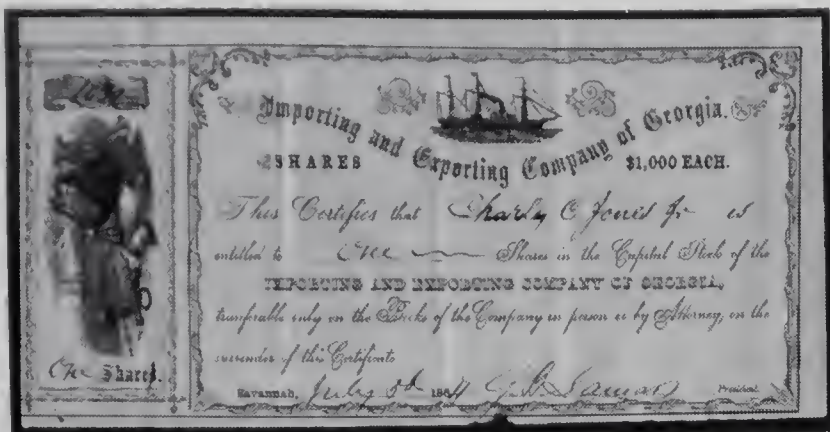 Importing and Exporting Company of Georgia.
SHARES $1,000 EACH.
This Certifies that Charles C Jones Jr is
entitled to One Shares in the Capital Stock of the
IMPORTING AND EXPORTING COMPANY OF GEORGIA,
transferable only on the Books of the Company in person or by Attorney, on the
surrender of this Certificate
One Shares.
Savannah, July 5th 1864 G. B. Lamar President